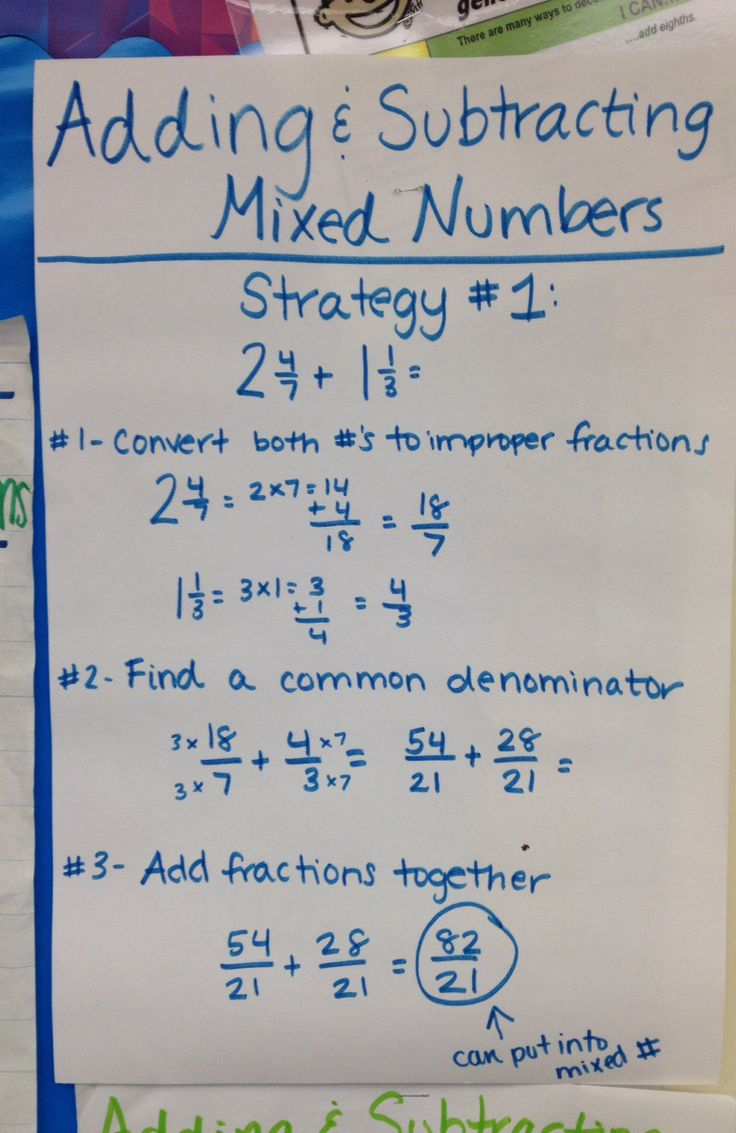 There are many ways to
I CAN...
....add eighths.
Adding & Subtracting
Mixed Numbers
Strategy #1:
2 4/7 + 1 1/3 =
#1- Convert both #'s to improper fractions
2 4/7 = 2x7=14
+4
18
= 18/7
1 1/3 = 3x1= 3
+1
4
= 4/3
#2- Find a common denominator
3x 18/3x 7 + 4 x7/3 x7 = 54/21 + 28/21 =
#3- Add fractions together
54/21 + 28/21 = 82/21
↑
can put into
mixed #
Adding & Subtracting